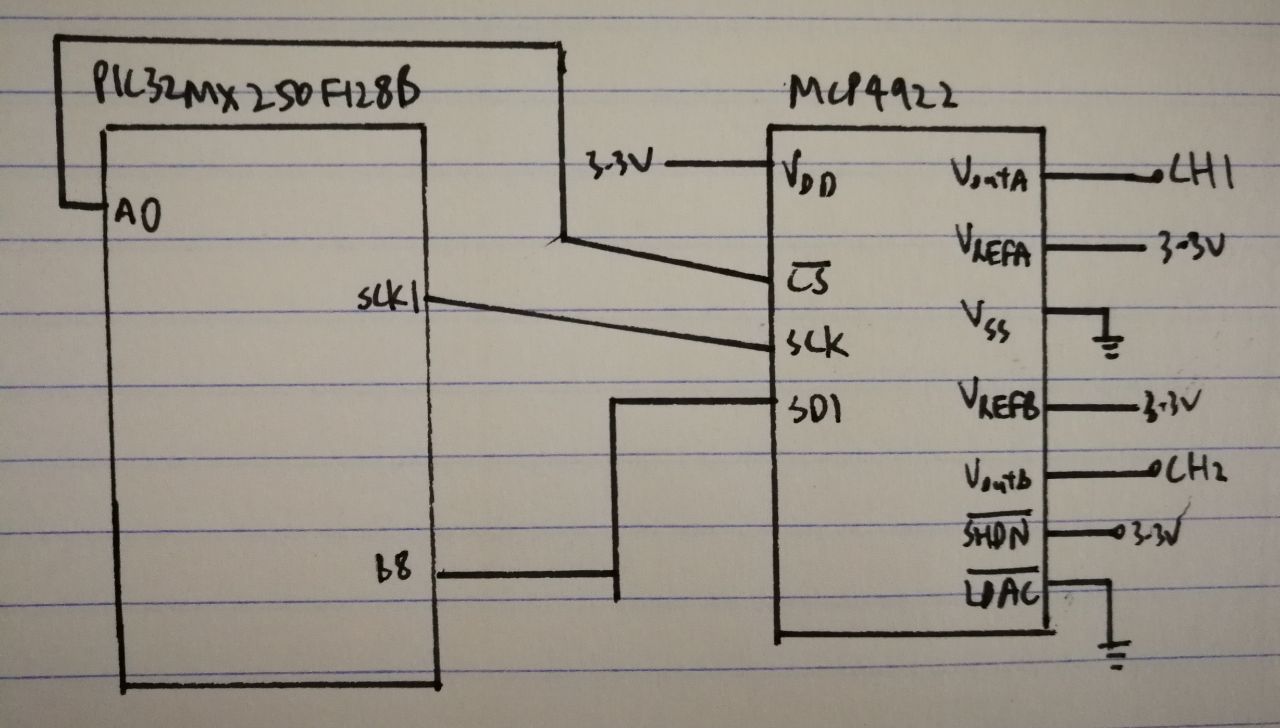 PIC32MX250F128B
MCP4922
A0
SCK1
B8
3.3V
VDD
CS
SCK
SDI
VoutA
CH1
VREFA
3.3V
VSS
VREFB
3.3V
VoutB
CH2
SHDN
3.3V
LDAC